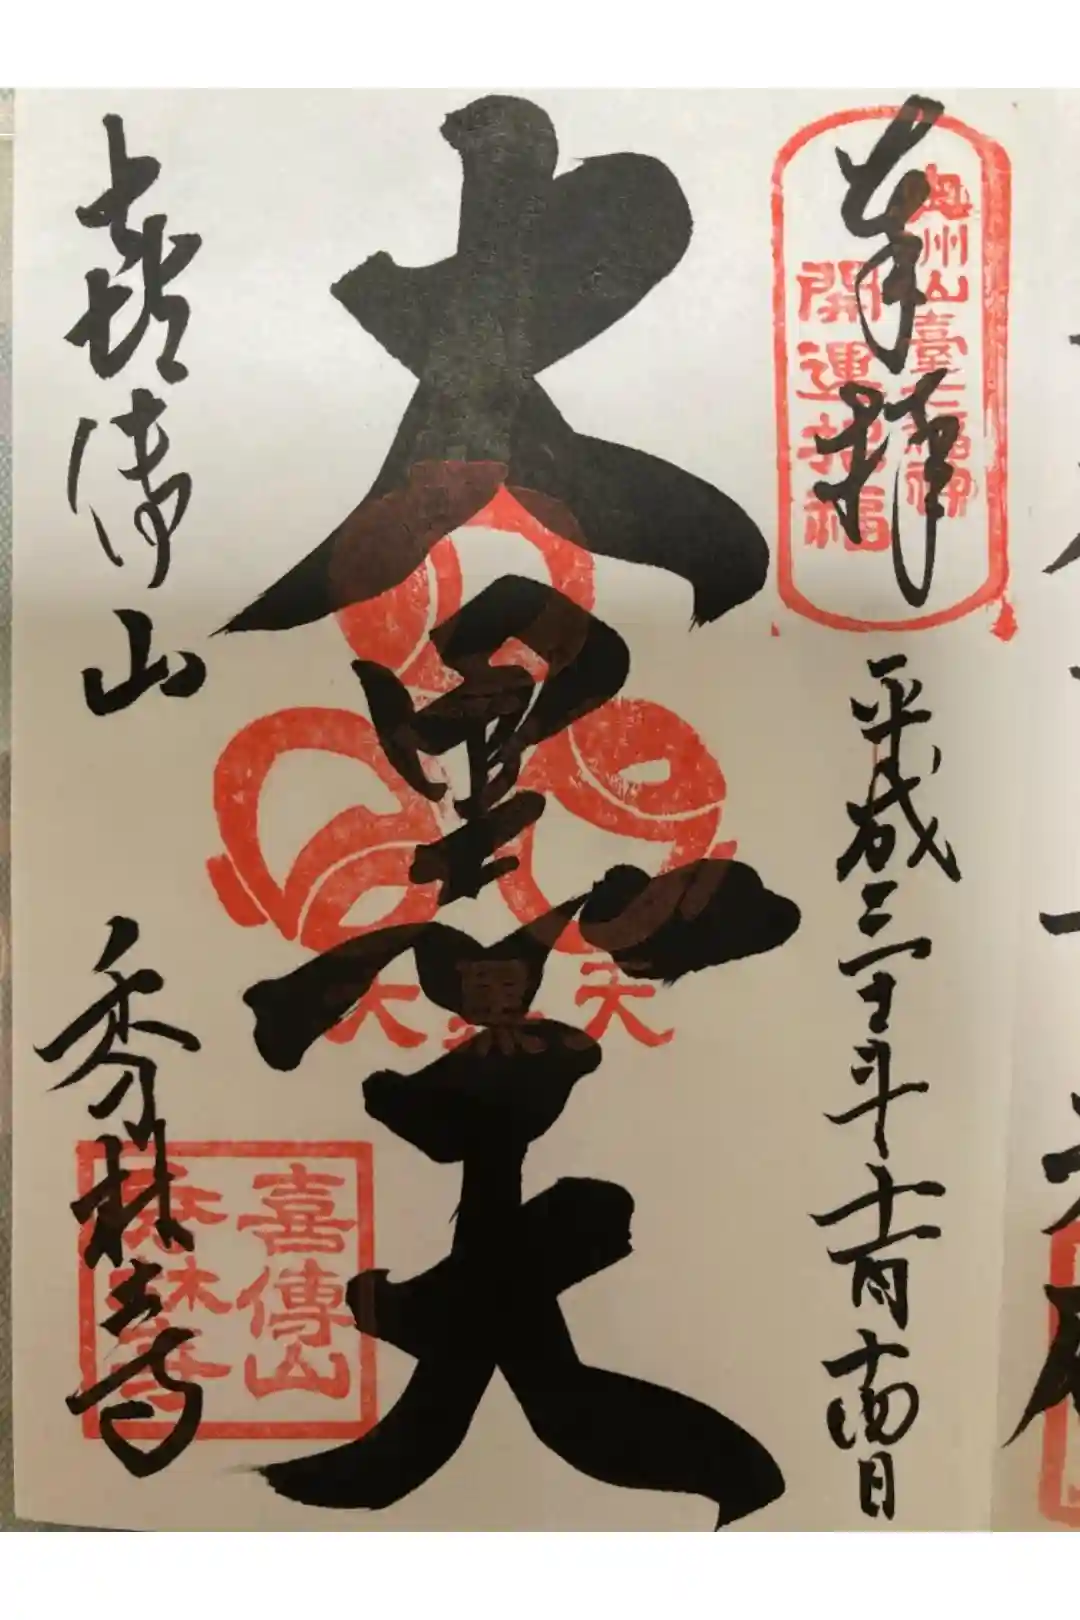 奉拝
奥州仙臺七福神
開運招福
平成三十年十一月十四日
大黒天
大黒天
喜傳山
秀林寺
喜傳山
秀林寺